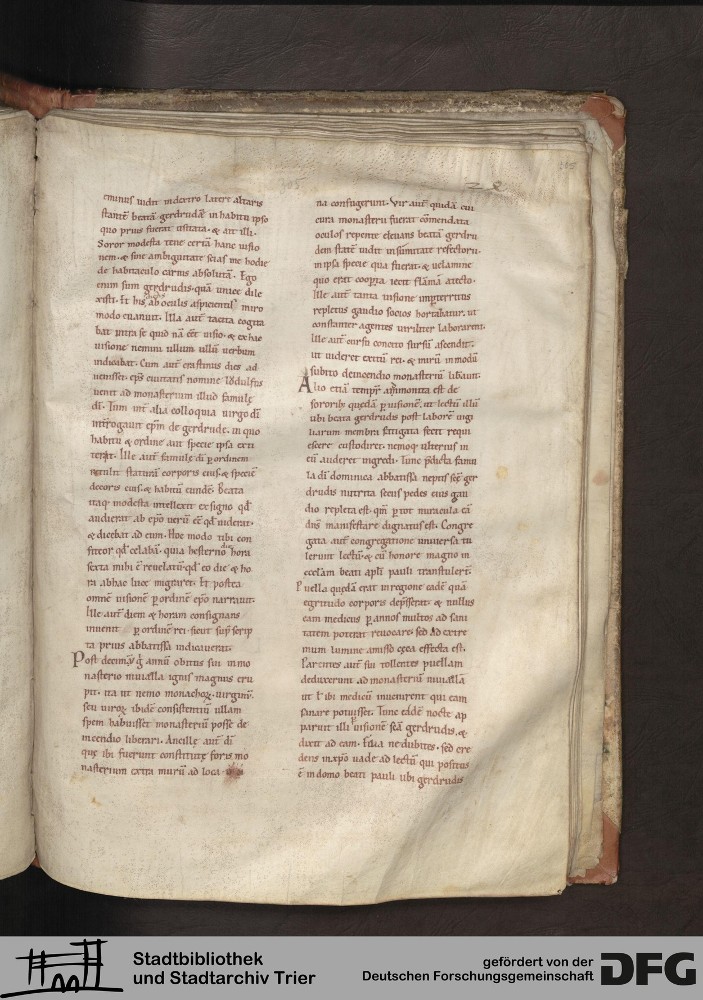 105
eminus uidit in dextro latere altaris
stantē beatā gerdrudā in habitu ipso
quo prius fuerat usitata · & ait illi ·
Soror modesta tene certā hanc uisio
nem · & sine ambiguitate scias me hodie
de habitaculo carnis absolutā · Ego
enim sum gerdrudis · quā uniee dile
xisti · Et his ab oculis aspicientis miro
modo euanuit · Illa aut̄ tacita cogita
bat intra se quid nā eēt uisio · & ex hac
uisione nemini ullum ullū uerbum
indicabat · Cum aut̄ crastinus dies ad
uenisset · ep̄s ciuitatis nomine
uenit ad monasterium illud famulę
dī · Tum int̄ alia colloquia uirgo dī
int̄rogauit ep̄m de gerdrude · in quo
habitu & ordine aut specie ipsa exti
terat · Ille aut̄ famulę dī p ordinem
retulit staturā corporis eius · & speciē
decoris eius · & habitū eundē · Beata
itaq; modesta intellexit ex signo qđ
audierat ab ep̄o uerū eē qđ uiderat ·
& dicebat ad eum · Hoc modo tibi con
fiteor qđ celabā · quia hesterno die hora
sexta mihi ē reuelatū · qđ eo die & ho
ra ab hac luce migraret · Et postea
omnē uisionē p ordinē ep̄o narrauit ·
Ille aut̄ diem & horam consignans
inuenit p ordinē rei · sicut sup̄ scrip
ta prius abbatissa indicauerat ·
Post decimū g̊ annū obitus sui in mo
nasterio niuialla ignis magnus eru
pit · ita ut nemo monachoꝝ · uirginū ·
seu uiroꝝ ibidē consistentiū ullam
spem habuisset monasteriū posse de
incendio liberari · Ancillę aut̄ dī
quę ibi fuerunt constitutę foris mo
nasterium extra murū ad loca
na confugerunt · Vir aut̄ quidā cui
cura monasterii fuerat cōmendata
oculos repente eleuans beatā gerdru
dem statē uidit in sūmitate refectorii ·
in ipsa specie qua fuerat · & uelamine
quo erat coopta iecit flāmā a tecto ·
Ille aut̄ tanta uisione impterritus
repletus gaudio socios hortabatur · ut
constanter agentes uiriliter laborarent ·
Ille aut̄ cursu concito sursū ascendit ·
ut uideret exitū rei · & mirū in modū
subito de incendio monasteriū libauit ·
Alio etiā tempr̄ amonita est de
sororib; quędā p uisionē · ut lectū illū
ubi beata gerdrudis post laborē uigi
liarum membra fatigata fecit requi
escere custodiret · nemoq; ulterius in
eū auderet ingredi · Tunc p̄dicta famu
la dī dominica abbatissa neptis scē ger
drudis nutrita secus pedes eius gau
dio repleta est · qm̄ p tot miracula eā
dn̄s manifestare dignatus est · Congre
gata aut̄ congregatione uniuersa tu
lerunt lectū · & cū honore magno in
eccl̄am beati apl̄i pauli transtulerū ·
Puella quędā erat in regione eadē quā
egritudo corporis dep̄sserat · & nullus
eam medicus p annos multos ad sani
tatem poterat reuocare · sed
mum lumine amisso cęca effecta est ·
Parentes aut̄ sui tollentes puellam
deduxerunt ad monasteriū niuialla
ut l̄ ibi medicū inuenirent qui eam
sanare potuisset · Tunc eadē nocte ap
paruit illi p uisionē scā gerdrudis · &
dixit ad eam · Filia ne dubites · sed cre
dens in xp̄o uade ad lectū qui positus
ē in domo beati pauli ubi gerdrudis
Stadtbibliothek
und Stadtarchiv Trier
gefördert von der
Deutschen Forschungsgemeinschaft
DFG